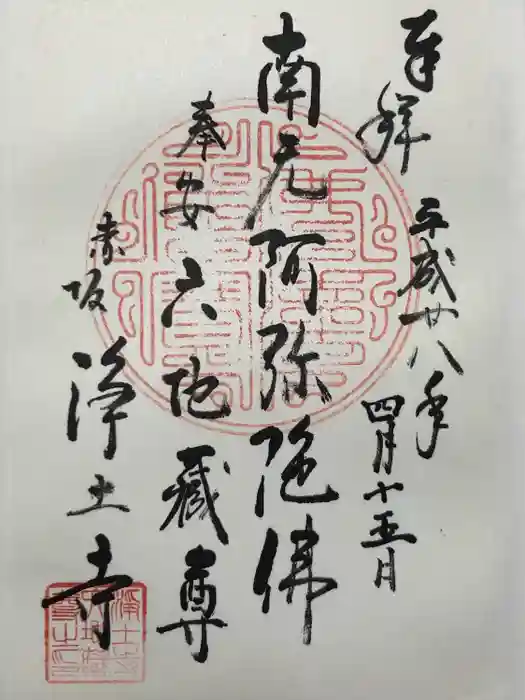 奉拝 平成廿八年
四月十五日
南无阿弥陀佛
奉安 六地蔵尊
赤坂 浄土寺